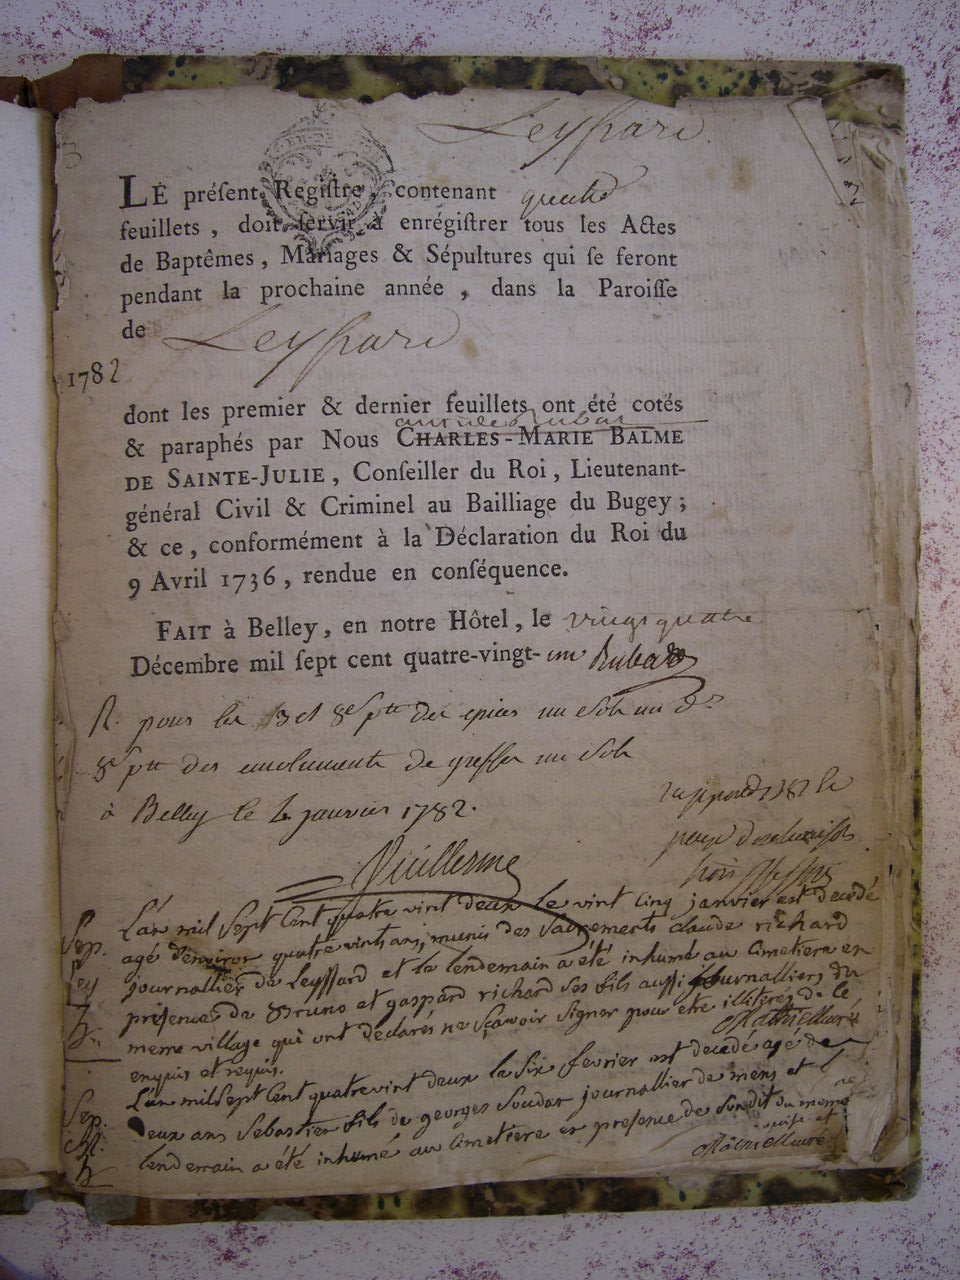 Leyssard
LE préſent Regiſtre, contenant quatre
feuillets, doit ſervir à enrégiſtrer tous les Actes
de Baptêmes, Mariages & Sépultures qui ſe feront
pendant la prochaine année, dans la Paroiſſe
de Leyssard
1782
dont les premier & dernier feuillets ont été cotés
& paraphés par Nous CHARLES-MARIE BALME
DE SAINTE-JULIE, Conſeiller du Roi, Lieutenant-
général Civil & Criminel au Bailliage du Bugey;
& ce, conformément à la Déclaration du Roi du
9 Avril 1736, rendue en conſéquence.
FAIT à Belley, en notre Hôtel, le vingt quatre
Décembre mil ſept cent quatre-vingt-un Rubat
R. pour les 3 et 8e ptt des epices un Sols un
8e ptt des emoluments de greffe un Sols
à Belley le 2 janvier 1782.
Vuillerme
Sep. L'an mil Sept Cent quatre vint deux le vint Cinq janvier est décédé
agé d'environ quatre vints ans, munis des Sacrements claude richard
Ley journallier de Leyssard et le lendemain a été inhumé au Cimetiere en
présence de Bruno et gaspard richard Ses fils aussi journalliers du
meme village qui ont déclarés ne Sçavoir Signer pour etre illiterés de ce
enquis et requis.
Sep. L'an mil Sept Cent quatre vint deux le Six fevrier est decedé agé de
deux ans Sebastien fils de georges Soudan journallier de mens et le
lendemain a été inhumé au Cimetiere en presence de Sondit du meme